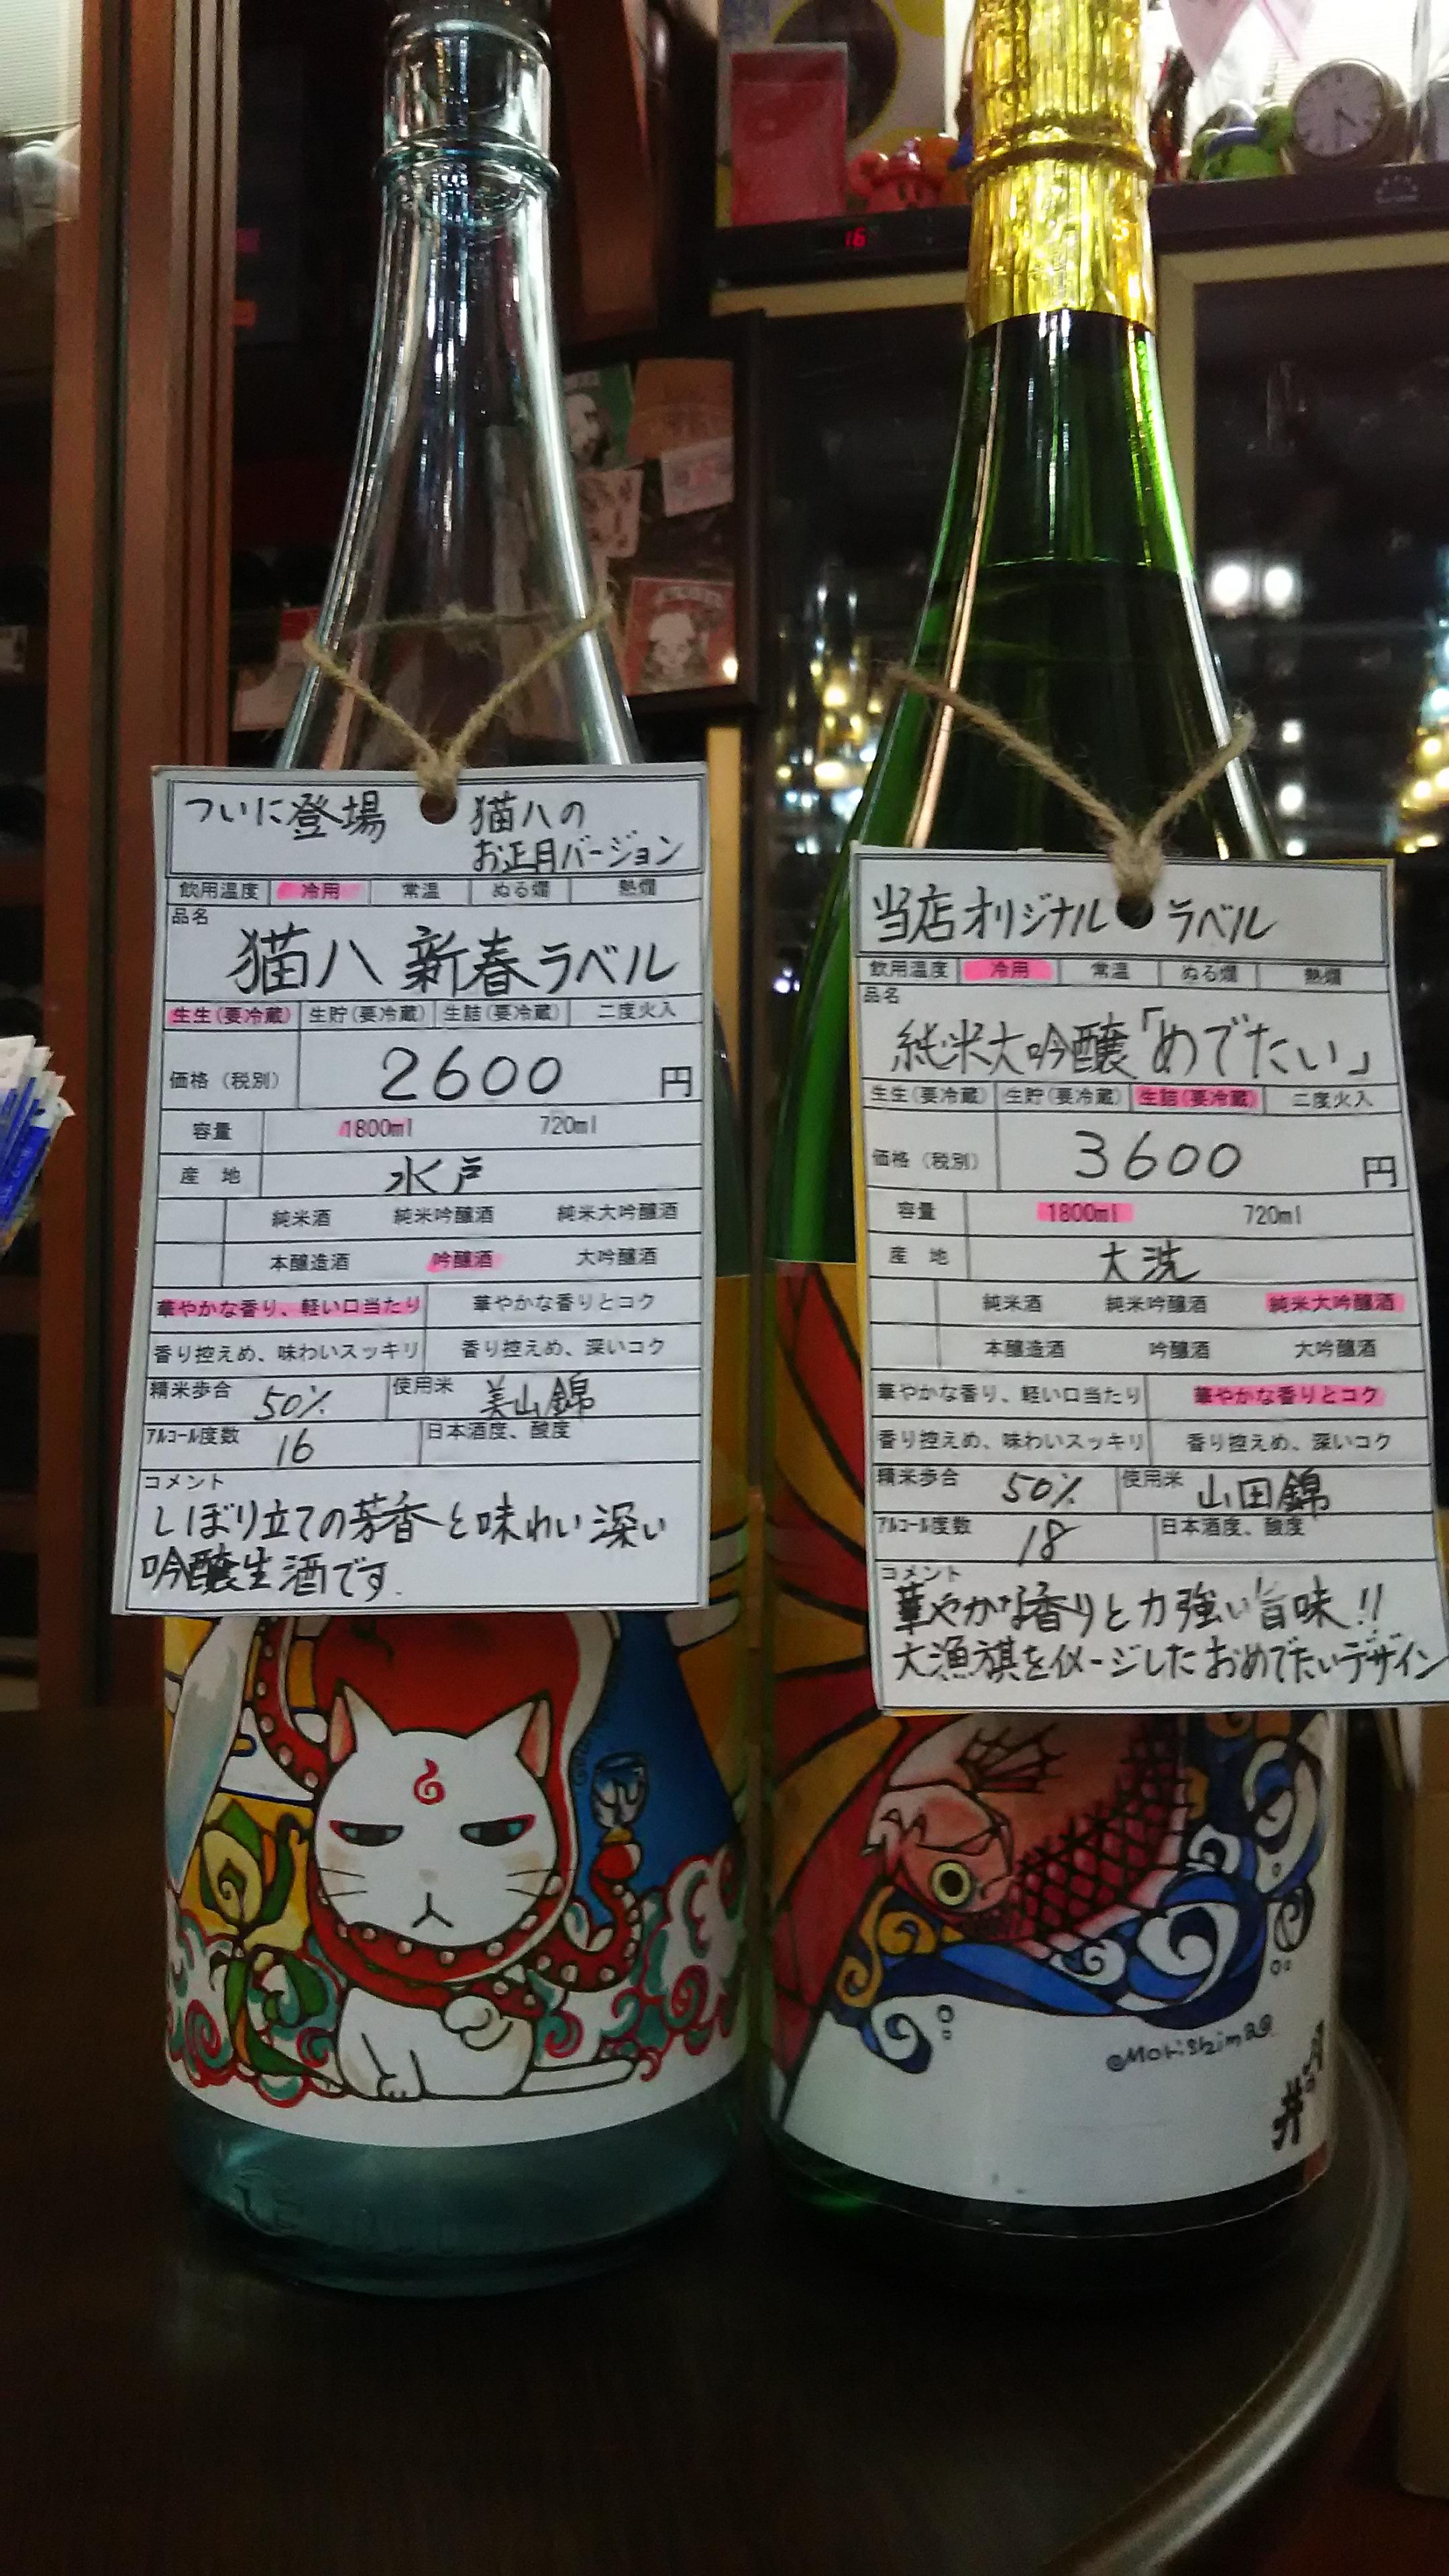 ついに登場 猫八の
お正月バージョン
飲用温度 冷用 常温 ぬる燗 熱燗
品名
猫八 新春ラベル
生生(要冷蔵) 生貯(要冷蔵) 生詰(要冷蔵) 二度火入
価格(税別) 2600 円
容量 1800ml 720ml
産 地 水戸
純米酒 純米吟醸酒 純米大吟醸酒
本醸造酒 吟醸酒 大吟醸酒
華やかな香り、軽い口当たり 華やかな香りとコク
香り控えめ、味わいスッキリ 香り控えめ、深いコク
精米歩合 50% 使用米 美山錦
アルコール度数 16 日本酒度、酸度
コメント
しぼり立ての芳香と味わい深い
吟醸生酒です.
当店オリジナルラベル
飲用温度 冷用 常温 ぬる燗 熱燗
品名
純米大吟醸「めでたい」
生生(要冷蔵) 生貯(要冷蔵) 生詰(要冷蔵) 二度火入
価格(税別) 3600 円
容量 1800ml 720ml
産 地 大洗
純米酒 純米吟醸酒 純米大吟醸酒
本醸造酒 吟醸酒 大吟醸酒
華やかな香り、軽い口当たり 華やかな香りとコク
香り控えめ、味わいスッキリ 香り控えめ、深いコク
精米歩合 50% 使用米 山田錦
アルコール度数 18 日本酒度、酸度
コメント
華やかな香りと力強い旨味!!
大漁旗をイメージしたおめでたいデザイン
16